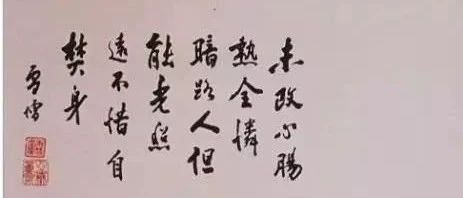 未改心腸
熱全憐
暗路人但
能光照
遠不惜自
焚身